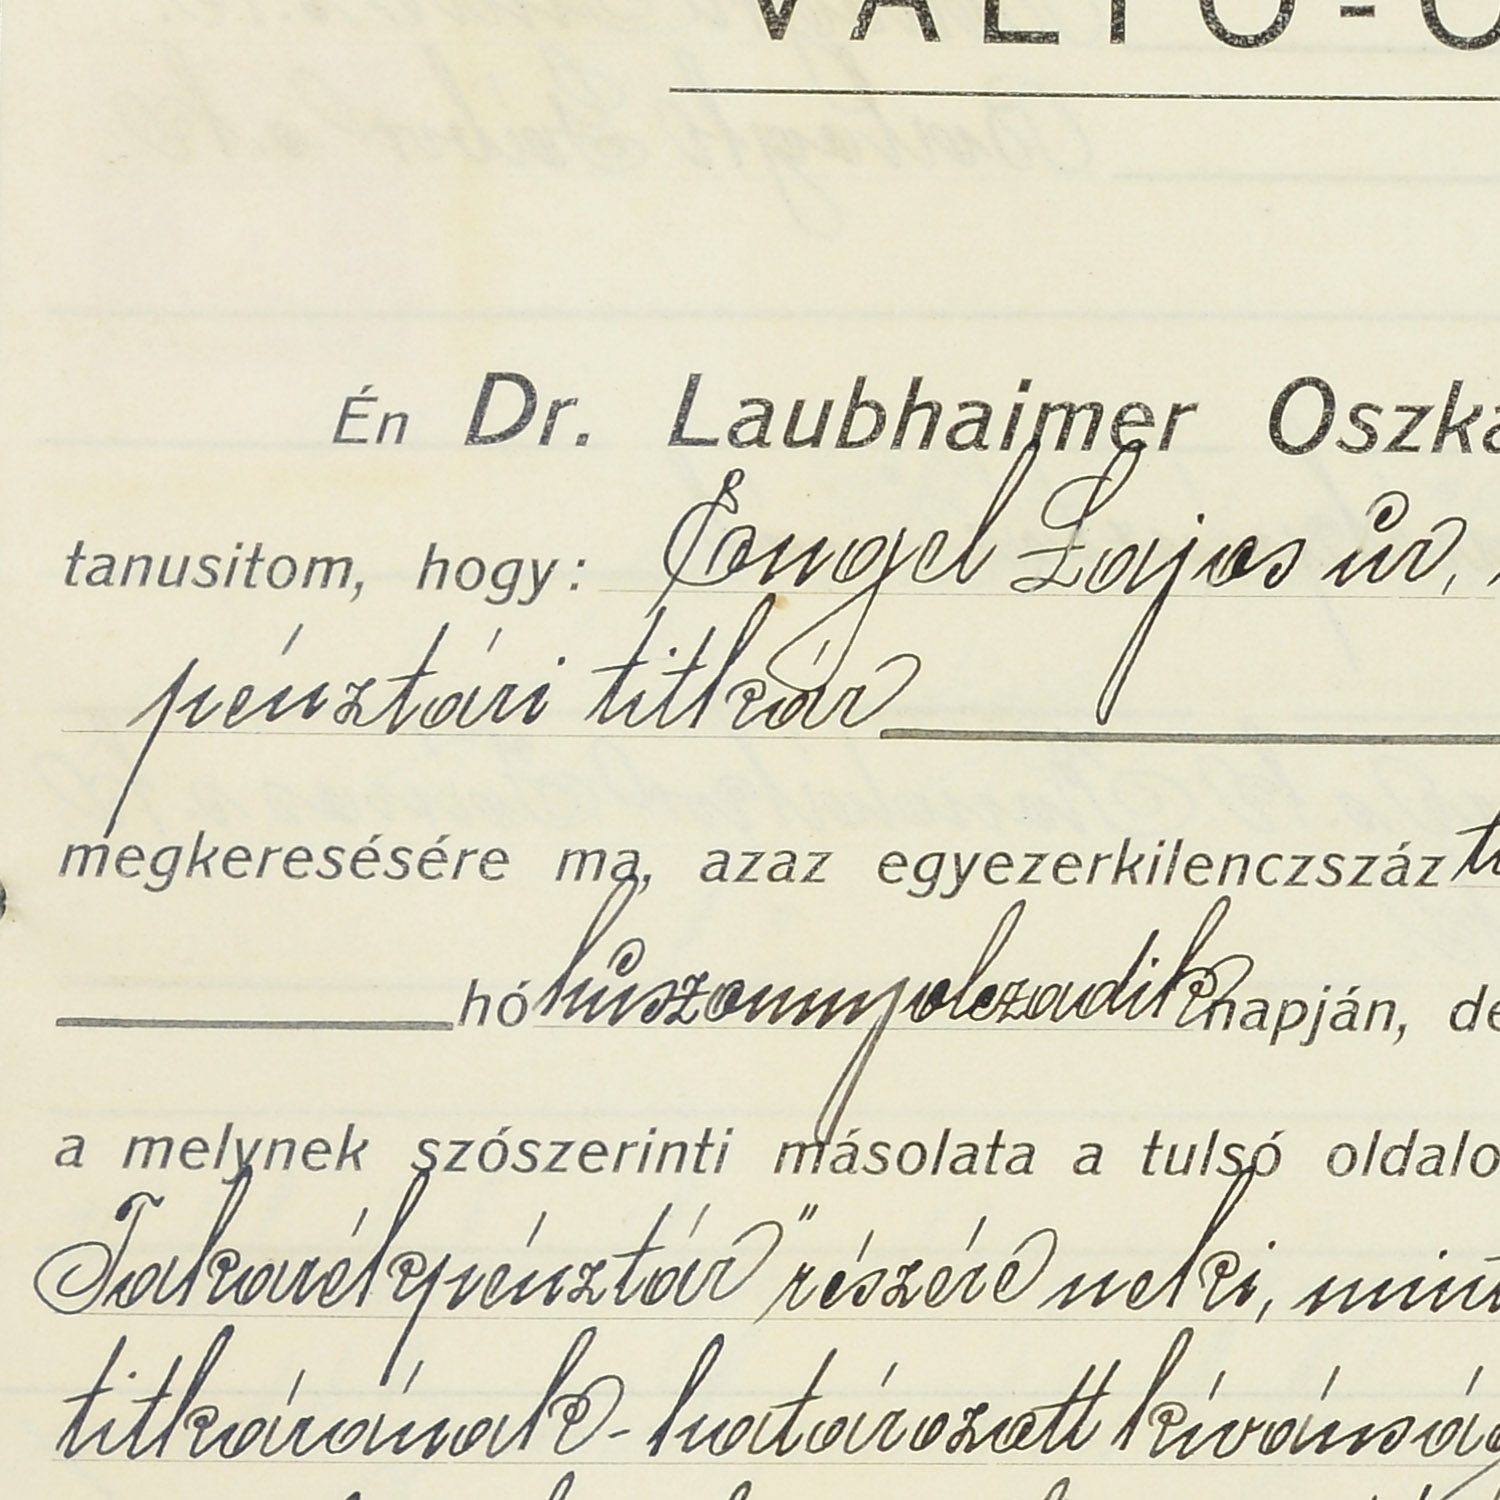 VÁLTÓ-Ó
Én Dr. Laubhaimer Oszká
tanusitom, hogy: Engel Lajos úr,
pénztári titkár
megkeresésére ma, azaz egyezerkilenczszáz ti
hó huszonnyolczadik napján, de
a melynek szószerinti másolata a tulsó oldalo
Takarékpénztár" részére neki, mint
titkárának - határozott kívánság